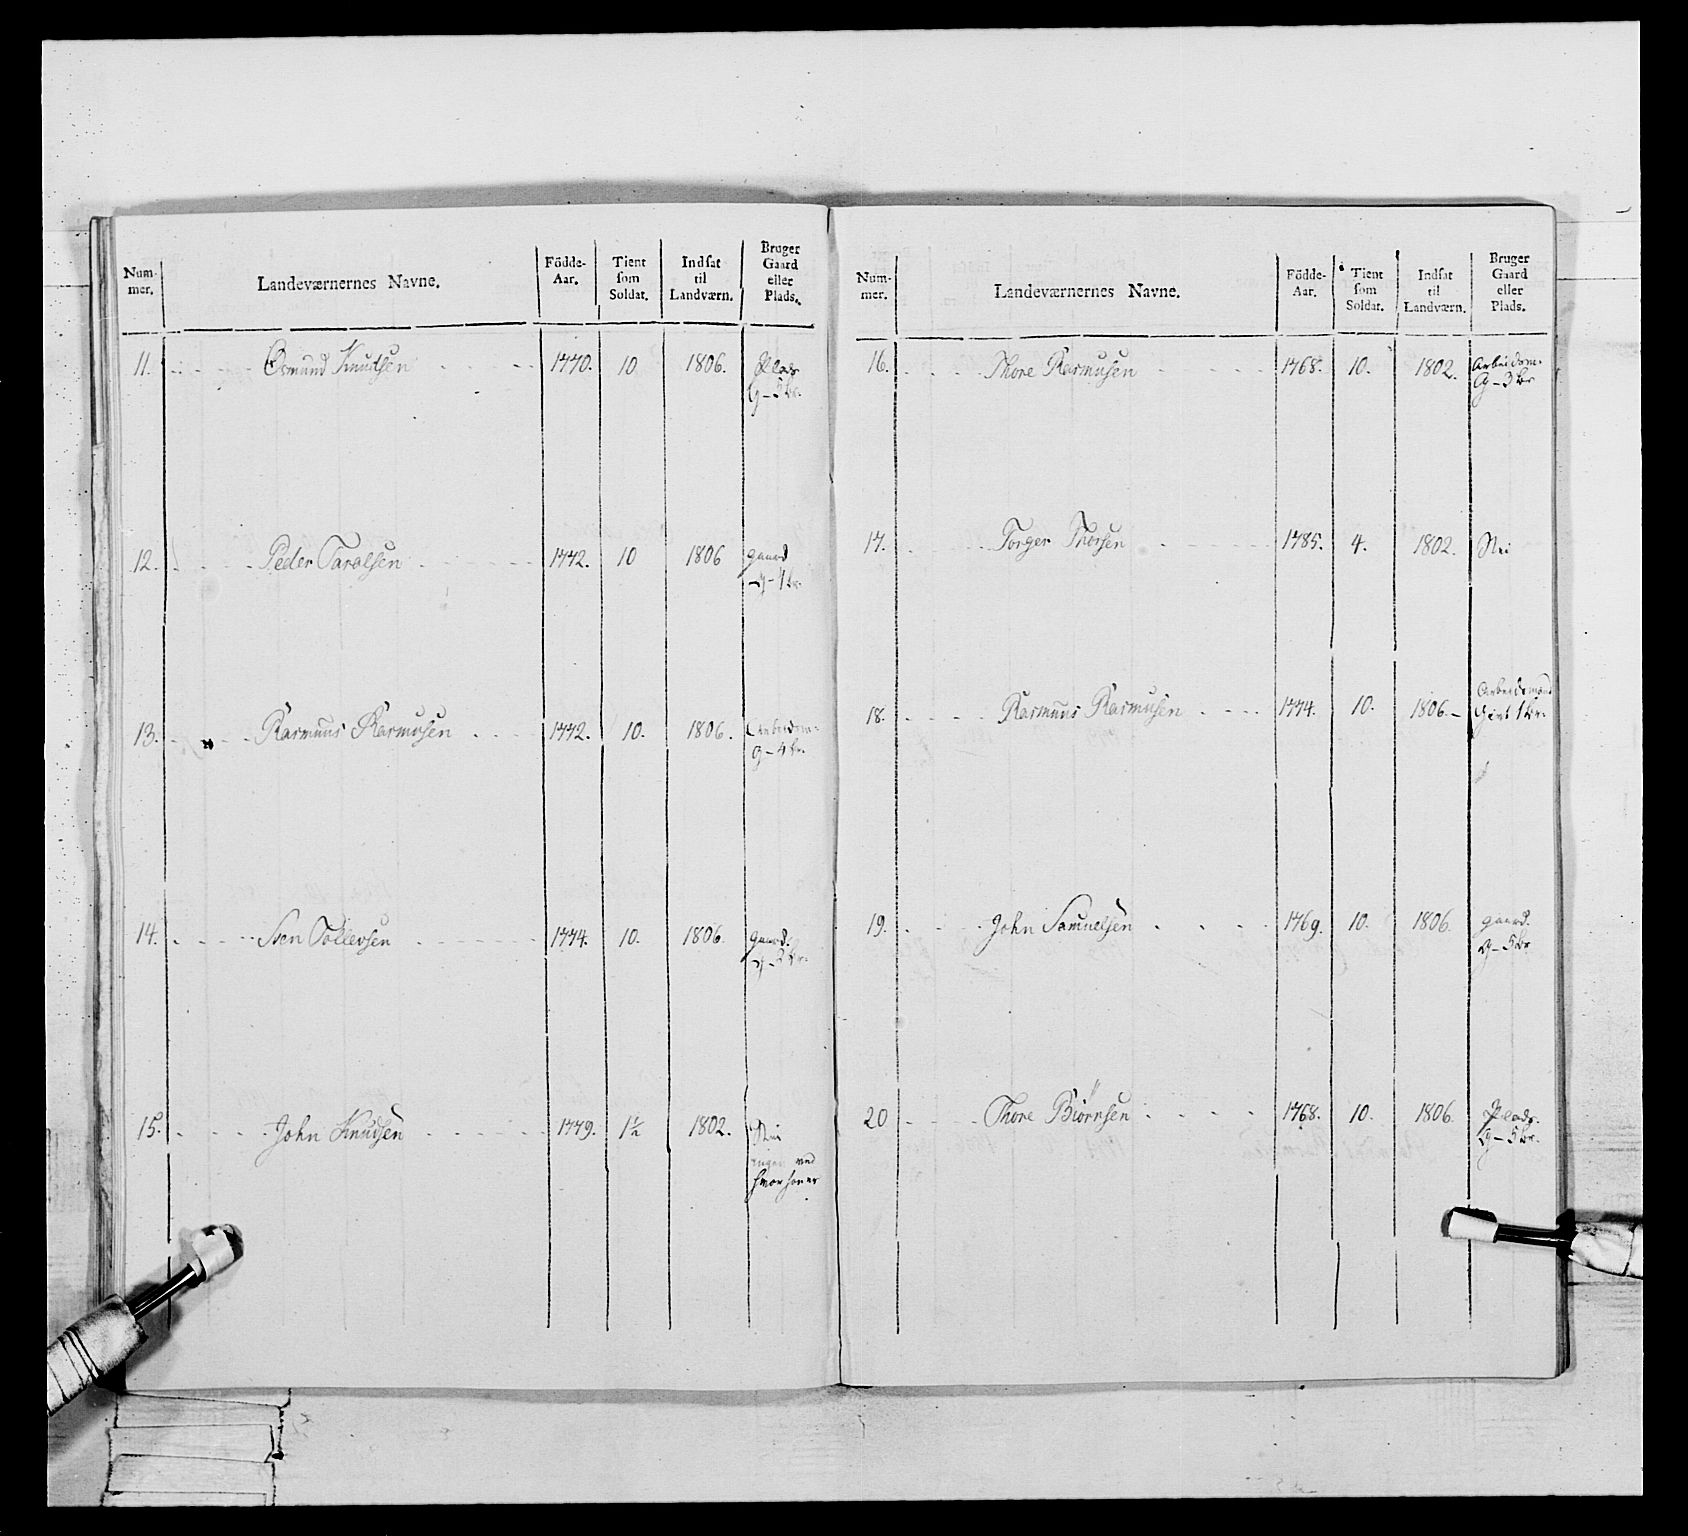 Num-
mer.
Landeværnernes Navne.
Födde-
Aar.
Tient
som
Soldat.
Indsat
til
Landværn.
Bruger
Gaard
eller
Plads.
11. Osmund Knudsen 1770. 10 1806. Plads
G – 5 br.
12. Peder Taralsen 1772. 10 1806 gaard
G – 4 br.
13. Rasmus Rasmusen 1772. 10. 1806. Arbeidsm.
G – 4 br.
14. Sven Tollevsen 1774. 10. 1806. gaard.
G – 2 br.
15. John Knudsen 1779. 1½ 1802. Nei
ingen ved
hvor han er
Num-
mer.
Landeværnernes Navne.
Födde-
Aar.
Tient
som
Soldat.
Indsat
til
Landværn.
Bruger
Gaard
eller
Plads.
16. Thore Rasmusen 1768. 10. 1802. Arbeidsm.
G – 3 br
17. Torger Thorsen 1785. 4. 1802. Nei
18. Rasmus Rasmusen 1774. 10. 1806 – Arbeidsmand
Givt 1 br.
19. John Samuelsen 1769. 10. 1806. gaard.
G – 5 br
20 Thore Biørnsen 1768. 10. 1806. Plads.
G – 5 br.